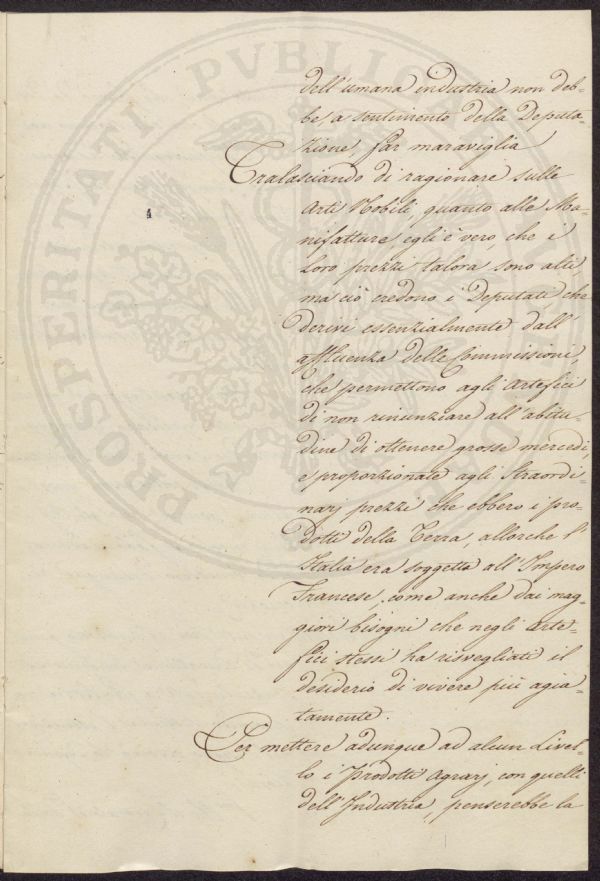 PROSPERITATI PVBLICAE
4
dell'umana industria non deb-
be, a sentimento della Deputa-
zione, far maraviglia
Tralasciando di ragionare sulle
Arti Nobili, quanto alle Ma-
nifatture egli è vero, che i
loro prezzi talora sono alti,
ma ciò credono i Deputati che
derivi essenzialmente dall'
affluenza delle Commissioni,
che permettono agli Artefici
di non rinunziare all'abitu-
dine di ottenere grosse mercedi,
e proporzionate agli Straordi-
narj prezzi che ebbero i pro-
dotti della Terra, allorche l'
Italia era soggetta all'Impero
Francese, come anche dai mag-
giori bisogni che negli Arte-
fici stessi ha risvegliati il
desiderio di vivere più agia-
tamente.
Per mettere adunque ad alcun Livel-
lo i Prodotti Agrarj, con quelli
dell'Industria, penserebbe la